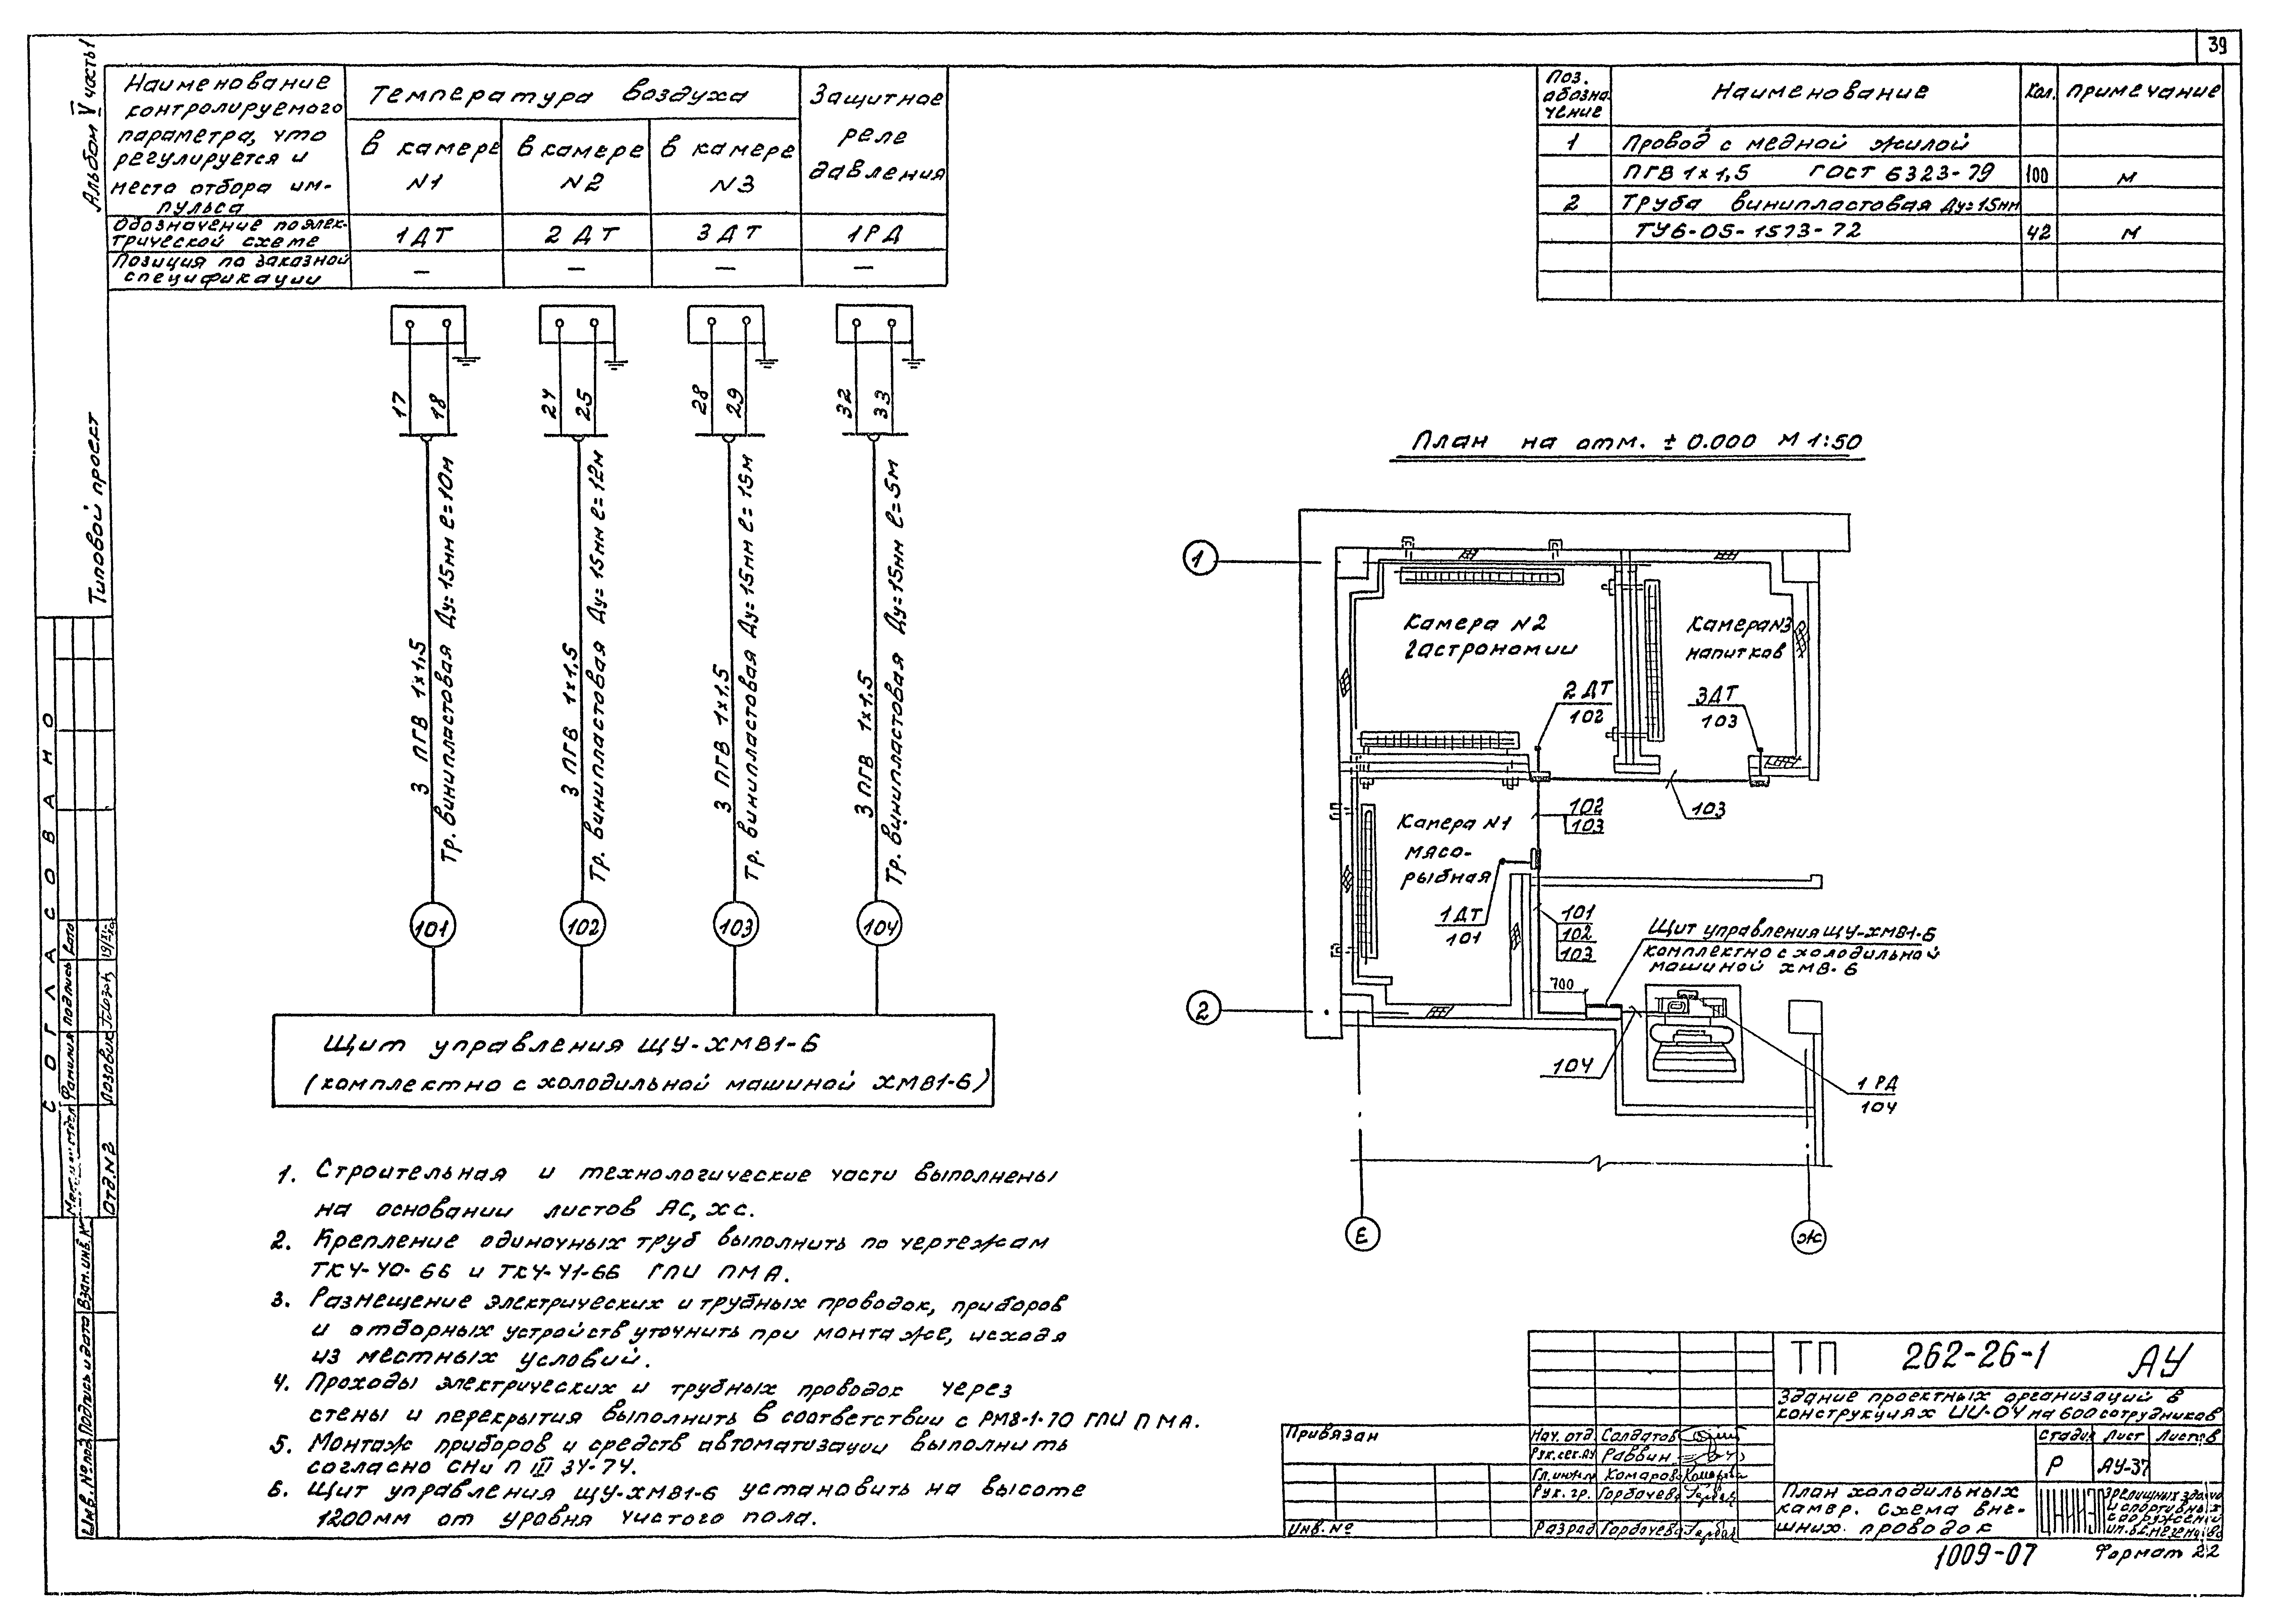 39
Альбом V часть 1
Типовой проект
Наименование
контролируемого
параметра, что
регулируется и
место отбора им-
пульса
Температура воздуха
в камере
N1
в камере
N2
в камере
N3
Защитное
реле
давления
Обозначение по элек-
трической схеме
1ДТ
2ДТ
3ДТ
1РД
Позиция по заказной
спецификации
—
—
—
—
17
18
24
25
28
29
32
33
3 ПГВ 1×1,5
Тр. винипластовая Ду=15мм ℓ=10м
3 ПГВ 1×1,5
Тр. винипластовая Ду=15мм ℓ=12м
3 ПГВ 1×1.5
Тр. винипластовая Ду=15мм ℓ=15м
3 ПГВ 1×1.5
Тр. винипластовая Ду=15мм ℓ=5м
101
102
103
104
Щит управления ЩУ-ХМВ1-6
(комплектно с холодильной машиной ХМВ1-6)
1. Строительная и технологические части выполнены
на основании листов АС, ХС.
2. Крепление одиночных труб выполнить по чертежам
ТК4-40-66 и ТК4-41-66 ГПИ ПМА.
3. Размещение электрических и трубных проводок, приборов
и отборных устройств уточнить при монтаже, исходя
из местных условий.
4. Проходы электрических и трубных проводок через
стены и перекрытия выполнить в соответствии с РМ8-1-70 ГПИ ПМА.
5. Монтаж приборов и средств автоматизации выполнить
согласно СНиП III 34-74.
6. Щит управления ЩУ-ХМВ1-6 установить на высоте
1200мм от уровня чистого пола.
Поз.
обозна-
чение
Наименование
Кол.
Примечание
1
Провод с медной жилой
ПГВ 1×1,5 ГОСТ 6323-79
100
м
2
Труба винипластовая Ду=15мм
ТУ6-05-1573-72
42
м
План на отм. ± 0.000 М 1:50
1
2
Е
Ж
Камера N2
гастрономии
Камера N3
напитков
2 ДТ
102
3ДТ
103
102
103
103
Камера N1
мясо-
рыбная
1ДТ
101
101
102
103
700
Щит управления ЩУ-ХМВ1-6
комплектно с холодильной
машиной ХМВ-6
104
1 РД
104
СОГЛАСОВАНО
Фамилия
Подпись
Дата
Отд. N2
Лозовик
Взам. инв. №
Подпись и дата
Инв. № подл.
Привязан
Инв. №
Нач. отд. Солдатов
Рук. сек. АУ Раввин
Гл. инж. Комаров
Рук. гр. Горбачева
Разраб. Горбачева
ТП 262-26-1 АУ
Здание проектных организаций в
конструкциях ИИ-04 на 600 сотрудников
Стадия
Лист
Листов
Р
АУ-37
План холодильных
камер. Схема вне-
шних проводок
ЦНИИЭП
зрелищных зданий
и спортивных
сооружений
им. Б.С. Мезенцева
1009-07
Формат 22